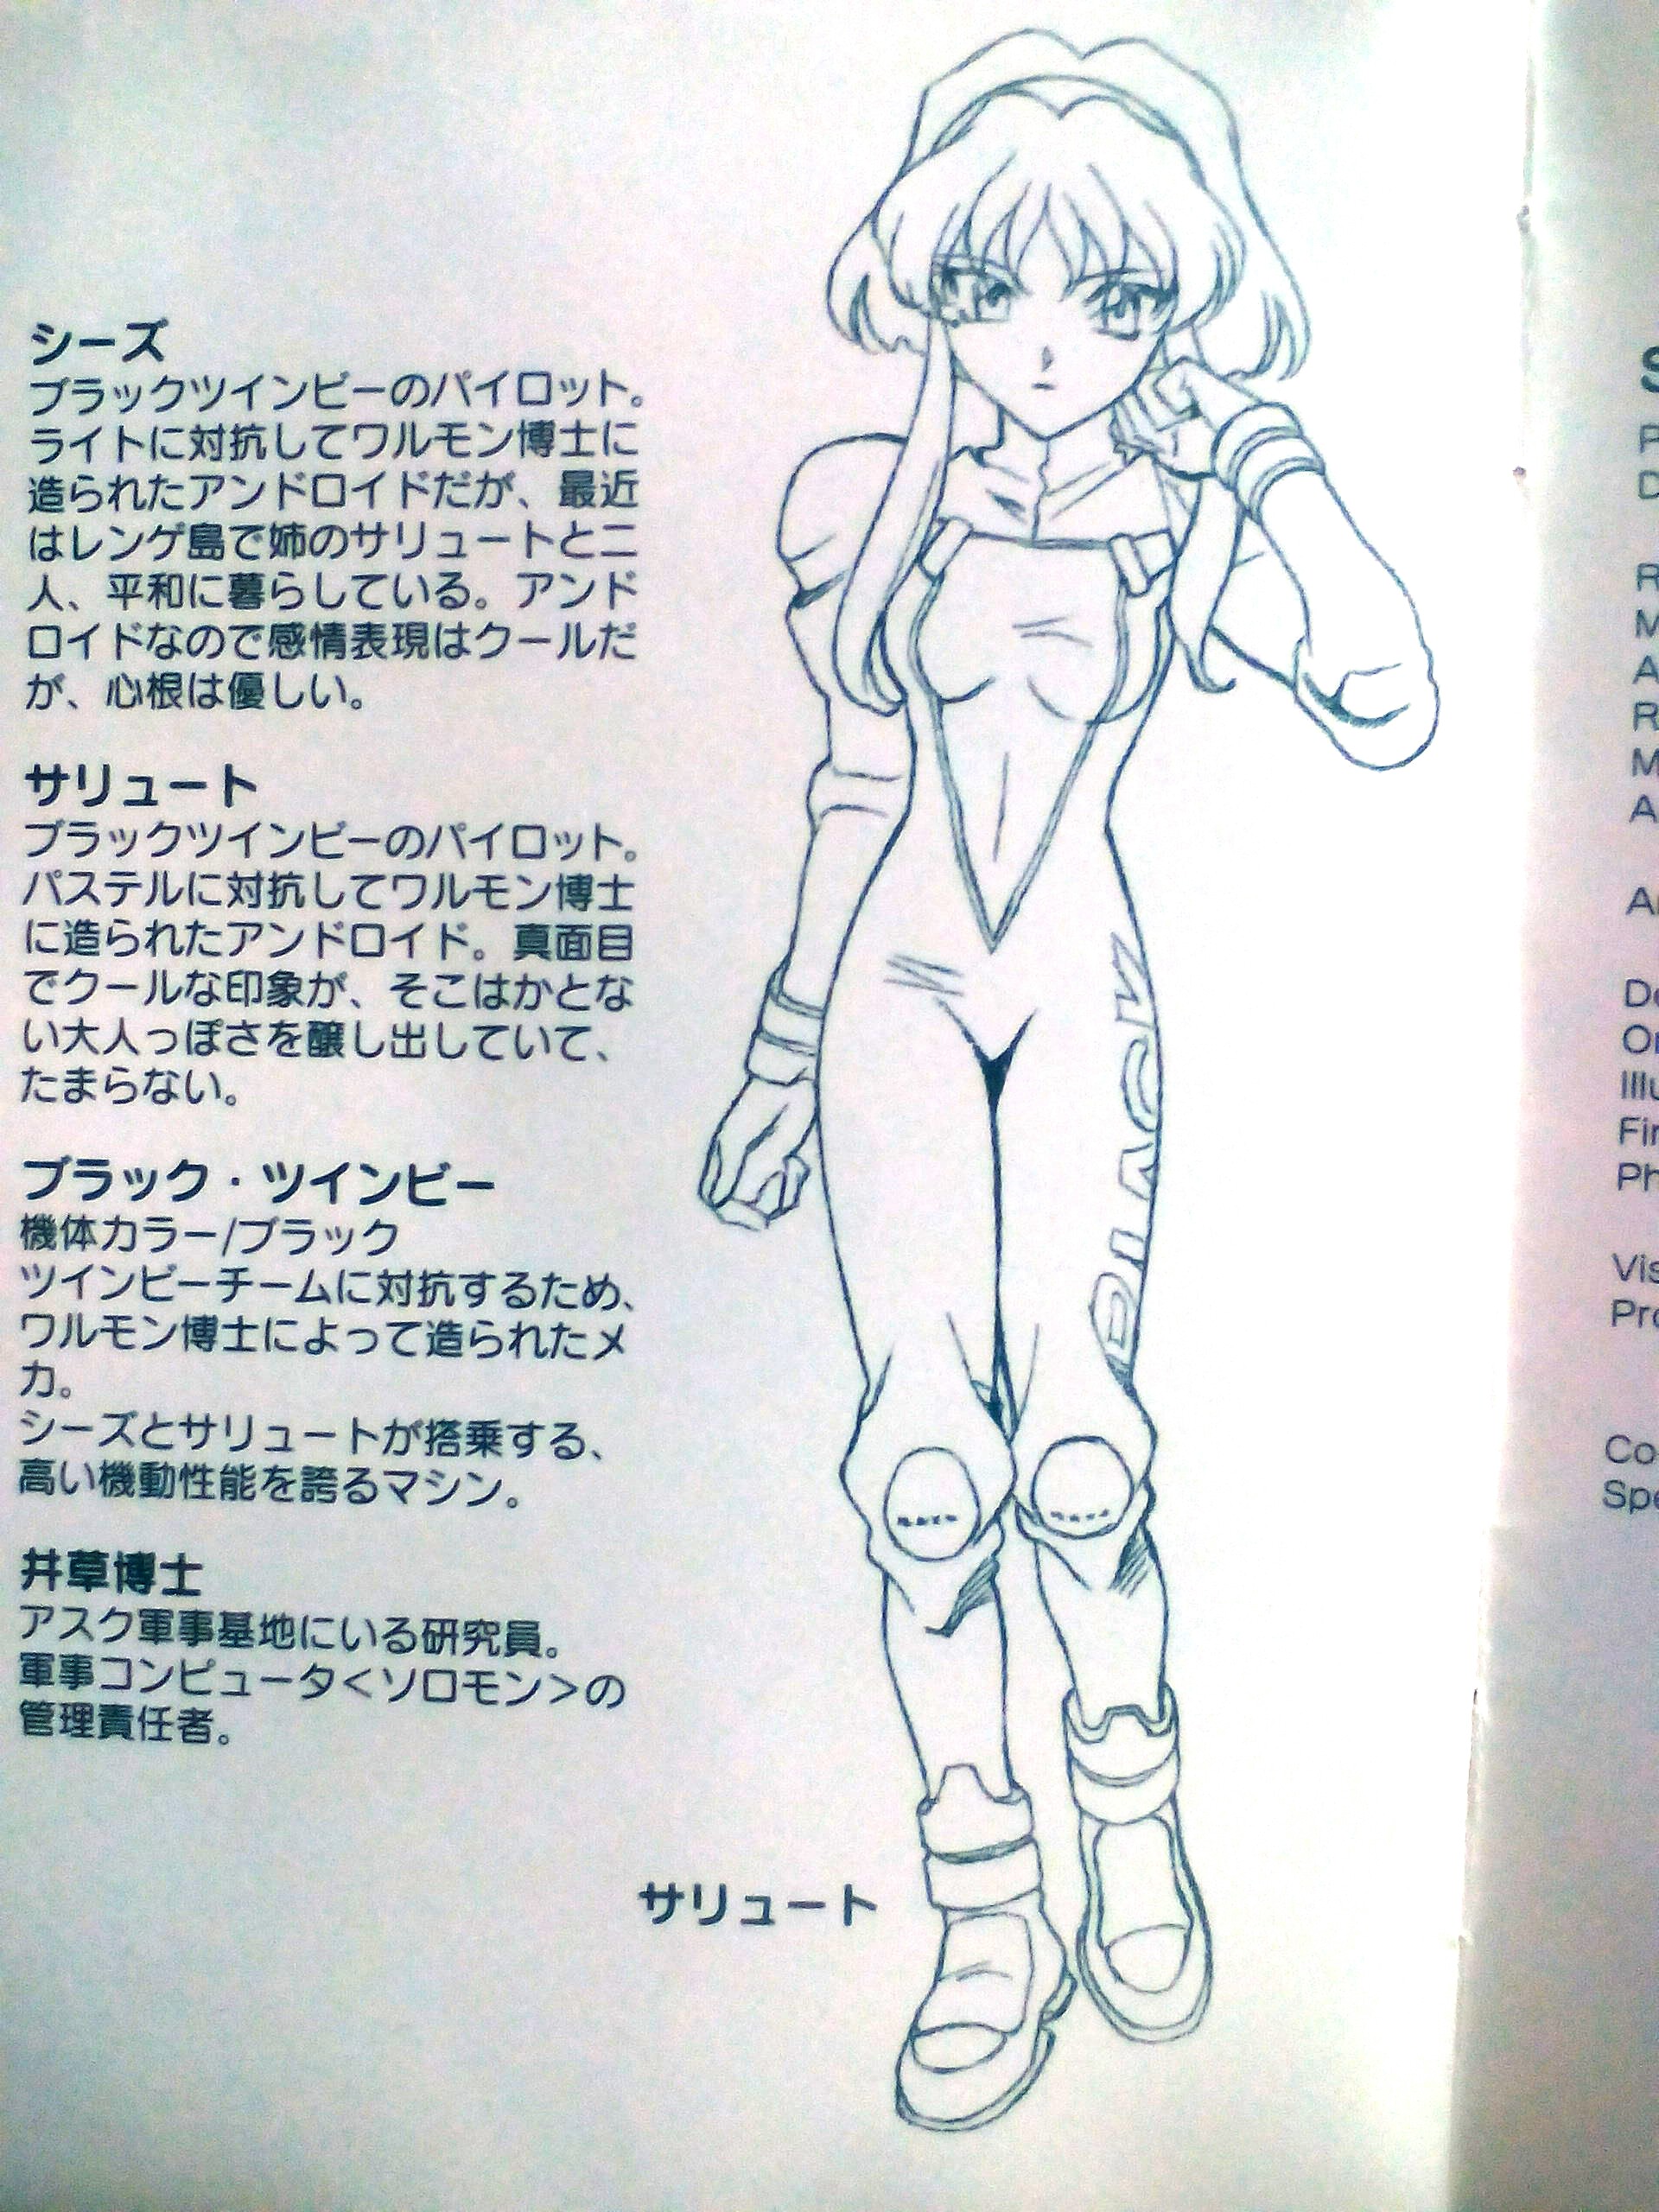 シーズ
ブラックツインビーのパイロット。
ライトに対抗してワルモン博士に
造られたアンドロイドだが、最近
はレンゲ島で姉のサリュートと二
人、平和に暮らしている。アンド
ロイドなので感情表現はクールだ
が、心根は優しい。
サリュート
ブラックツインビーのパイロット。
パステルに対抗してワルモン博士
に造られたアンドロイド。真面目
でクールな印象が、そこはかとな
い大人っぽさを醸し出していて、
たまらない。
ブラック・ツインビー
機体カラー/ブラック
ツインビーチームに対抗するため、
ワルモン博士によって造られたメ
カ。
シーズとサリュートが搭乗する、
高い機動性能を誇るマシン。
井草博士
アスク軍事基地にいる研究員。
軍事コンピュータ<ソロモン>の
管理責任者。
サリュート
BLACK